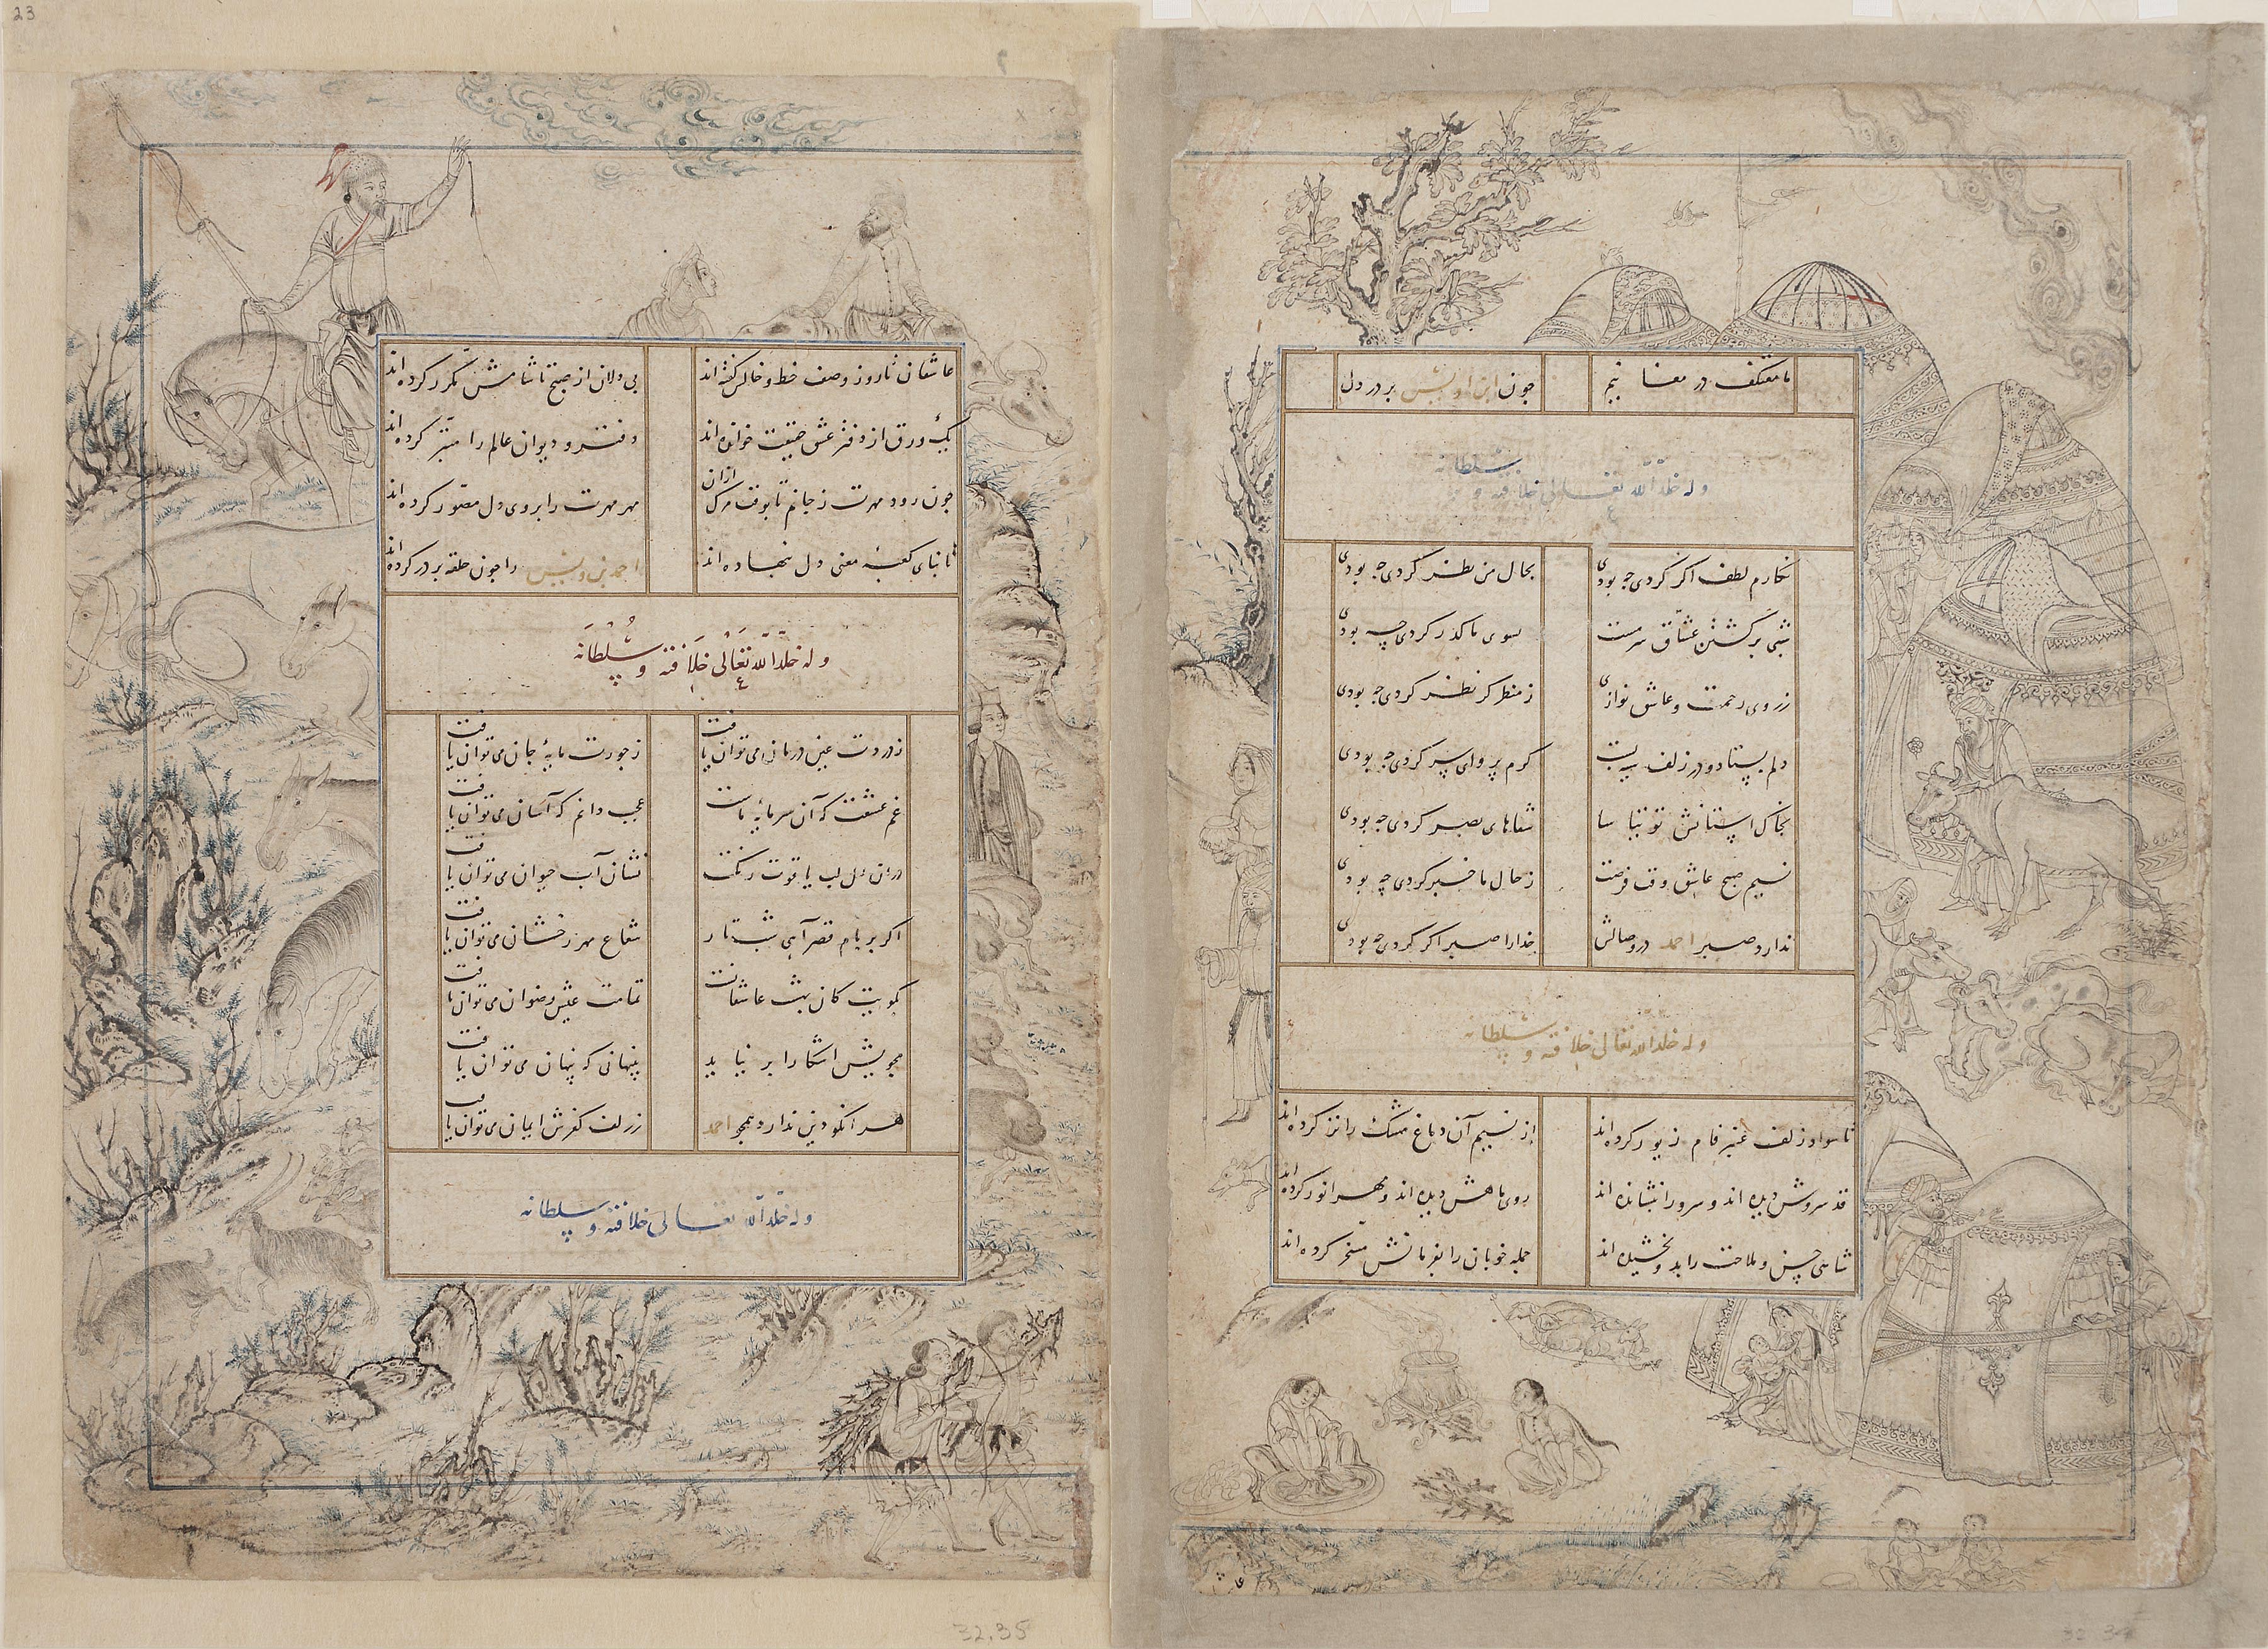 ما معتکف در مغانیم چون ابن اویس بر در دل
وله خلد الله تعالی خلافته وسلطانه
نکارم لطف اکر کردی چه بودی بحال من نظر کردی چه بودی
شبی بر کشتن عشاق سرمست سوی ما کذر کردی چه بودی
ز روی رحمت و عاشق نوازی ز منظر کر نظر کردی چه بودی
دلم بستاد و در زلف سیه بست کرم پروای سر کردی چه بودی
بخاک استانش توتیا سا شفاهای بصر کردی چه بودی
نسیم صبح عاشق وقت فرصت ز حال ما خبر کردی چه بودی
ندارد صبر احمد در وصالش خدارا صبر اکر کردی چه بودی
وله خلد الله تعالی خلافته وسلطانه
تا سواد زلف عنبر فام زیور کرده‌اند از نسیم آن دماغ مشک را تر کرده‌اند
قد سروش دیده اند و سرو را بنشانده اند روی ماهش دیده اند و مهر انور کرده‌اند
شاهی حسن و ملاحت را بدو بخشیده اند جمله خوبان را بفرمانش مسخر کرده‌اند
عاشقان تا روز وصف خط و خالش کفته‌اند بی دلان از صبح تا شامش مکرر کرده‌اند
یک ورق از دفتر عشق حقیقت خوانده‌اند دفتر و دیوان عالم را مبتر کرده‌اند
چون رود مهرت ز جانم تا بوقت مرک ازان مهر مهرت را بروی دل مصور کرده‌اند
تا بنای کعبهٔ معنی دل بنهاده‌اند احمد بن ویس را چون حلقه بر در کرده‌اند
وله خلد الله تعالی خلافته وسلطانه
ز دردت عین درمان می توان یافت ز جورت مایهٔ جان می توان یافت
غم عشقت که آن سرمایهٔ ماست عجب دانم که آسان می توان یافت
دران لعل لب یاقوت رنکت نشان آب حیوان می توان یافت
اکر بر بام قصر آیی شب تار شعاع مهر رخشان می توان یافت
بکویت کان بهشت عاشقانست تمامت عیش رضوان می توان یافت
مجویش اشکارا بر نیاید پنهانی که پنهان می توان یافت
هر انکو دین ندارد همچو احمد ز زلف کفرش ایمان می توان یافت
وله خلد الله تعالی خلافته وسلطانه
23
32.35